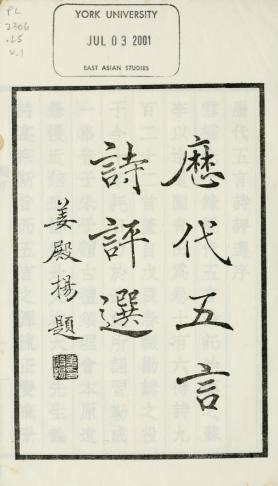 PL
2306
.L5
V.1
YORK UNIVERSITY
JUL 03 2001
EAST ASIAN STUDIES
歷代五言
詩評選
姜殿揚題